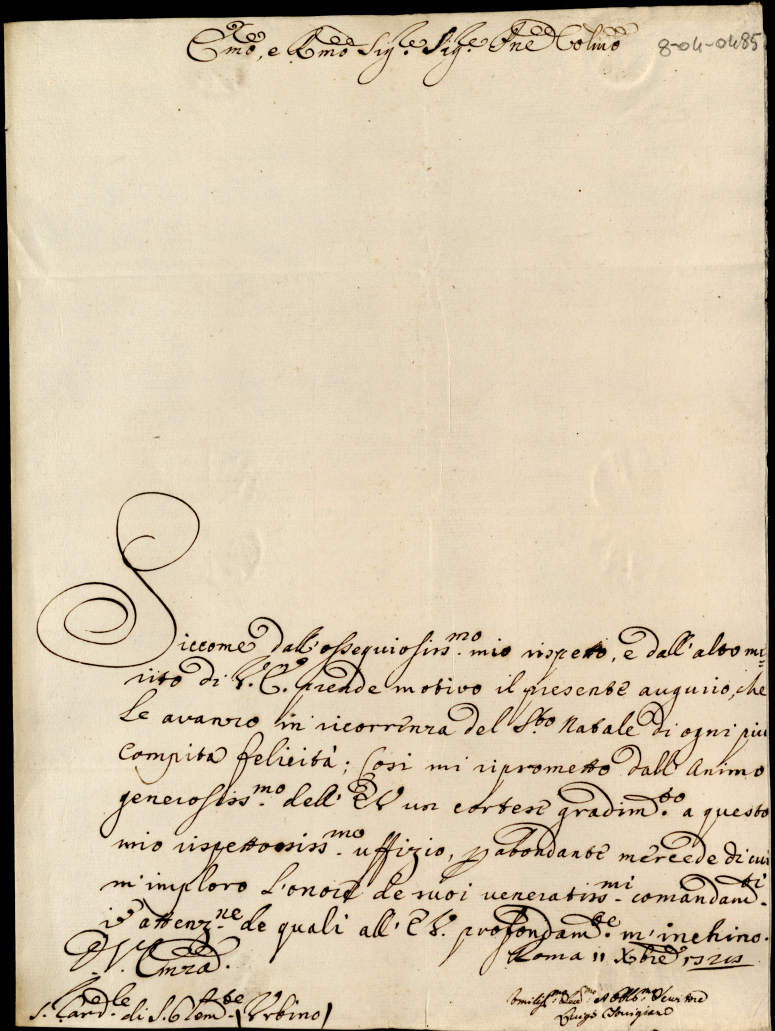 Emo, e Rmo Sig.e Sig.e Pne Colmo
8-04-0485
Siccome dall'ossequiosiss.mo mio rispetto, e dall'alto me=
rito di V. E. prende motivo il presente augurio, che
Le avanzo in ricorrenza del S.to Natale di ogni più
compita felicità; Così mi riprometto dall'Animo
generosiss.mo dell'E V un cortese gradim.to a questo
mio rispettosiss.mo uffizio, p abondante mercede di cui
m'imploro l'onore de suoi veneratiss.mi comandam.ti
attenz.ne de quali all'E V. profondam.te m'inchino.
D. V. Emza. Roma 11 Xbre
S. Card.le di S. Clem.te (Urbino) Umiliss.mo Devmo Obblmo Servitore
Luigi